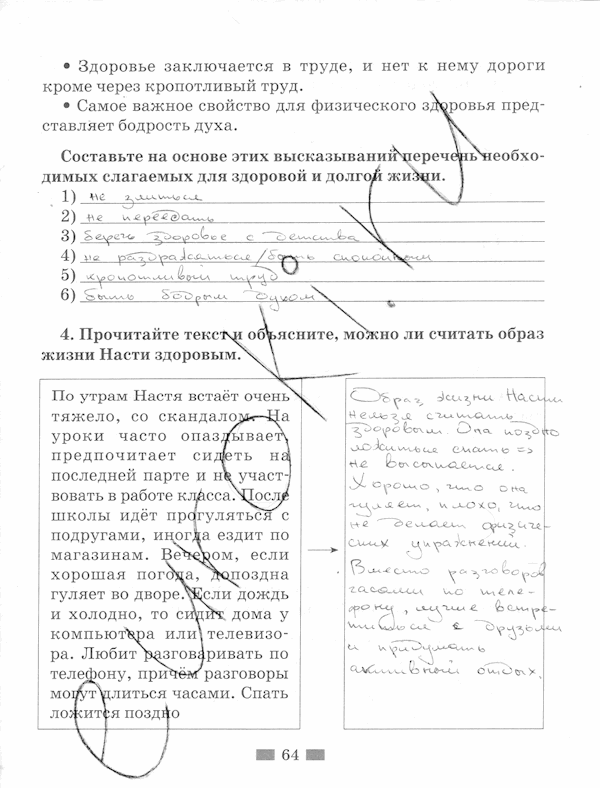 • Здоровье заключается в труде, и нет к нему дороги
кроме через кропотливый труд.
• Самое важное свойство для физического здоровья пред-
ставляет бодрость духа.
Составьте на основе этих высказываний перечень необхо-
димых слагаемых для здоровой и долгой жизни.
1) не злиться
2) не переедать
3) беречь здоровье с детства
4) не раздражаться/быть спокойным
5) кропотливый труд
6) быть бодрым духом
4. Прочитайте текст и объясните, можно ли считать образ
жизни Насти здоровым.
По утрам Настя встаёт очень
тяжело, со скандалом. На
уроки часто опаздывает,
предпочитает сидеть на
последней парте и не участ-
вовать в работе класса. После
школы идёт прогуляться с
подругами, иногда ездит по
магазинам. Вечером, если
хорошая погода, допоздна
гуляет во дворе. Если дождь
и холодно, то сидит дома у
компьютера или телевизо-
ра. Любит разговаривать по
телефону, причём разговоры
могут длиться часами. Спать
ложится поздно
Образ жизни Насти
нельзя считать
здоровым. Она поздно
ложиться спать =>
не высыпается.
Хорошо, что она
гуляет, плохо, что
не делает физиче-
ских упражнений.
Вместо разговоров
часами по теле-
фону, лучше встре-
титься с друзьями
и придумать
активный отдых.
64